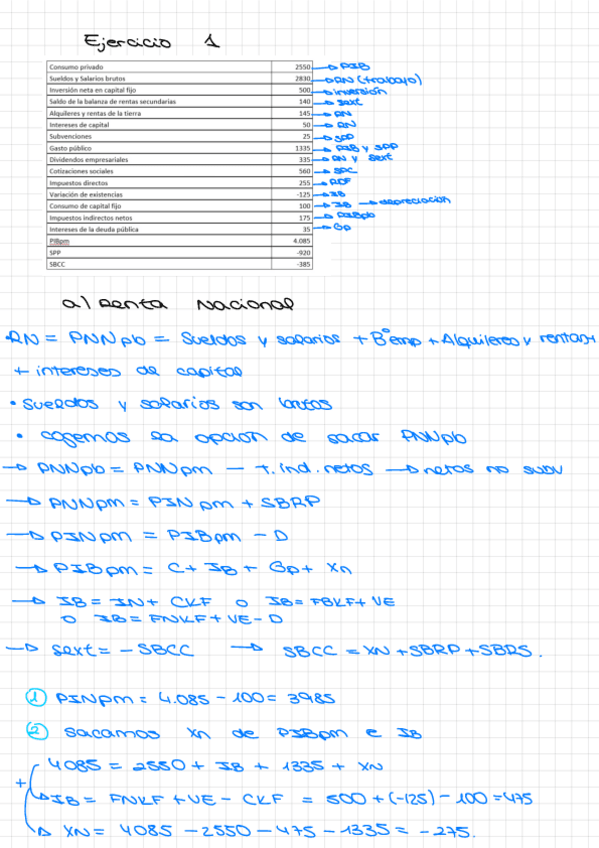 Ejercicio 1
Consumo privado 2550 → PIB
Sueldos y Salarios brutos 2830 → RN (trabajo)
Inversión neta en capital fijo 500 → inversión
Saldo de la balanza de rentas secundarias 140 → Sext
Alquileres y rentas de la tierra 145 → RN
Intereses de capital 50 → RN
Subvenciones 25 → SPP
Gasto público 1335 → PIB y SPP
Dividendos empresariales 335 → RN y Sext
Cotizaciones sociales 560 → SPC
Impuestos directos 255 → RDF
Variación de existencias -125 → IB
Consumo de capital fijo 100 → IB → depreciación
Impuestos indirectos netos 175 → PIBpb
Intereses de la deuda pública 35 → Gp
PIBpm 4.085
SPP -920
SBCC -385
a) Renta Nacional
• RN = PNNpb = Sueldos y salarios + Bº emp + Alquileres y rentas +
+ intereses de capital
• Sueldos y salarios son brutos
• cogemos la opción de sacar PNNpb
→ PNNpb = PNNpm − t. ind. netos → netos no subv
→ PNNpm = PIN pm + SBRP
→ PINpm = PIBpm − D
→ PIBpm = C + IB + Gp + Xn
→ IB = IN + CKF o IB = FBKF + VE
o IB = FNKF + VE − D
→ Sext = − SBCC → SBCC = XN + SBRP + SBRS.
① PINpm = 4.085 − 100 = 3985
② Sacamos Xn de PIBpm e IB
4085 = 2550 + IB + 1335 + XN
+ → IB = FNKF + VE − CKF = 500 + (-125) − 100 = 475
→ XN = 4085 − 2550 − 475 − 1335 = − 275.